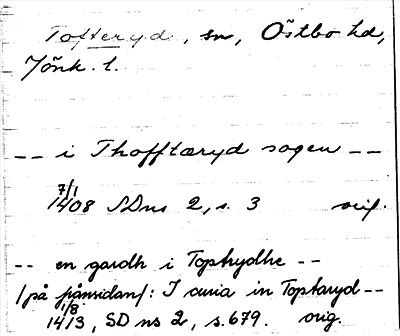 Tofteryd, sn, Östbo hd,
Jönk. l.
-- i Thofftæryd sogen --
7/1 1408 SD ns 2, s. 3 orig.
-- en gardh i Toptrydhe --
/på pånsidan/: I curia in Toptaryd --
1/8 1413, SD ns 2, s. 679. orig.